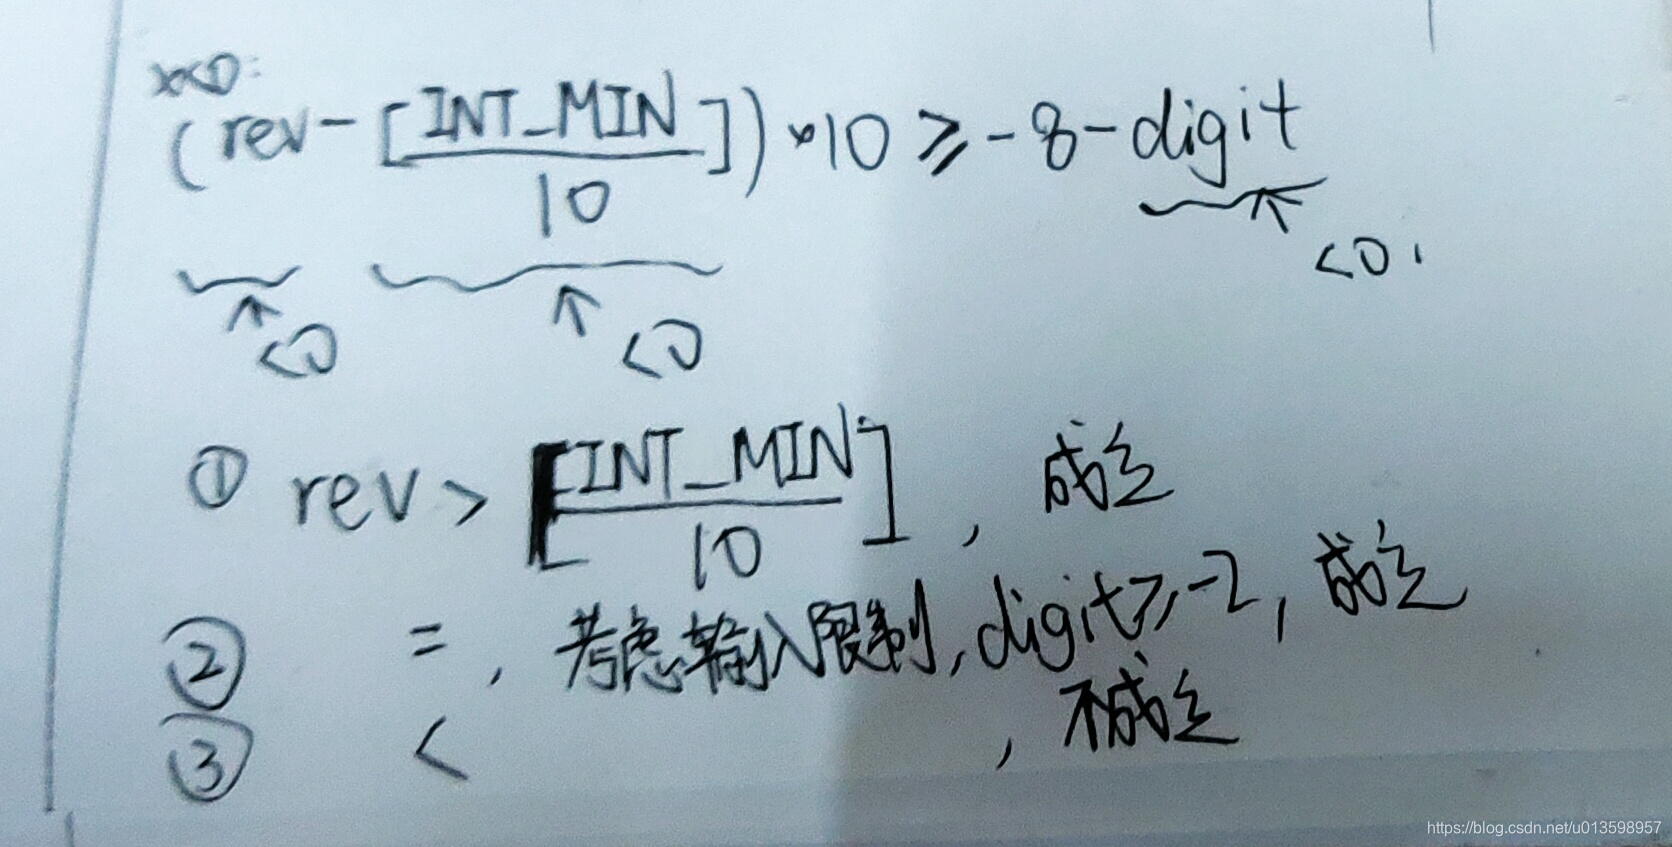 x<0:
(rev-[INT_MIN/10])*10≥-8-digit
<0 <0 <0.
① rev>[INT_MIN/10], 成立
② =, 考虑输入限制, digit≥-2, 成立
③ <, 不成立
https://blog.csdn.net/u013598957